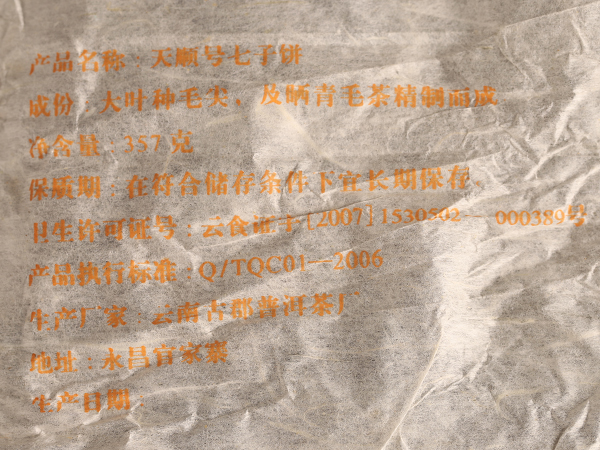 产品名称：天顺号七子饼
成份：大叶种毛尖，及晒青毛茶精制而成
净含量：357克
保质期：在符合储存条件下宜长期保存。
卫生许可证号：云食证字[2007]1530502-000389号
产品执行标准：Q/TQC01—2006
生产厂家 云南古郡普洱茶厂
地址：永昌官家寨
生产日期：